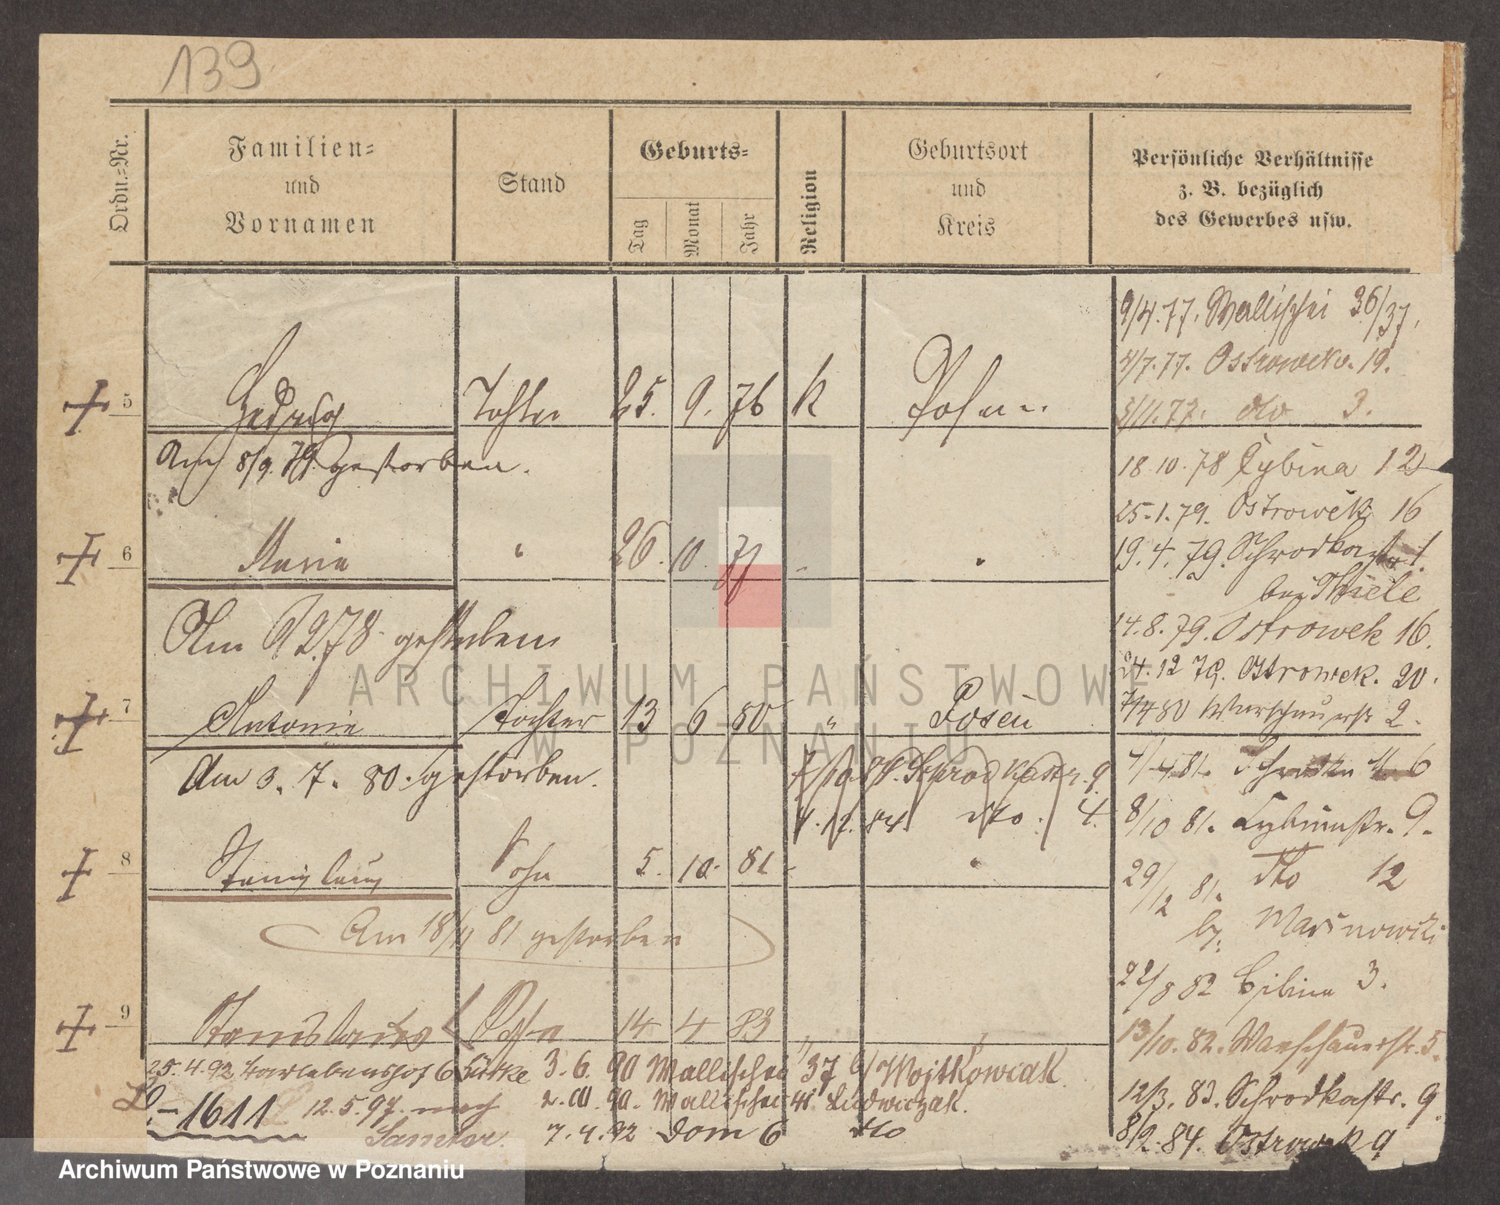 139
Ordn.-Nr. Familien- und Vornamen Stand Geburts- Tag Monat Jahr Religion Geburtsort und Kreis Persönliche Verhältnisse z. B. bezüglich des Gewerbes usw.
9/4.77. Wallischei 36/37.
4/7.77. Ostrowek. 19.
5 Hedwig Tochter 25. 9. 76 k Posen
3/11.77. dto 3.
Am 8/9. 79. gestorben.
18.10.78 Cybina 12
25.1.79. Ostrowek 16
6 Marie " 26. 10. 77 "
19.4.79. Schrodkastr. 1.
bei Thiele
Am 9 2.78. gestorben
14.8.79. Ostrowek 16.
24.12 79. Ostrowek. 20.
7 Antonie Tochter 13 6 80 " Posen
7/4 80 Warschauerstr 2.
Am 3. 7. 80. gestorben.
Schrodkastr. 9
4/4 81. 6
dto. 4.
8/10 81. Cybinastr. 9.
8 Stanislaus Sohn 5. 10. 81 "
29/12 81. dto 12
b/
Am 18/11 81 gestorben
22/8 82 Cybina 3.
9 Stanislaus Sohn 14 4 83
13/10. 82. Warschauerstr. 5.
25.4.92 6 3.6.90 Wallischei 37 b/ Wojtkowiak
12/3. 83. Schrodkastr. 9.
1611 12.5.97. nach Samter. 2.10.90. Wallischei 41. Ludwiczak.
7.4.92 Dom 6 dto
8/2.84. Ostrowek 9
ARCHIWUM PAŃSTWOWE
W POZNANIU
Archiwum Państwowe w Poznaniu